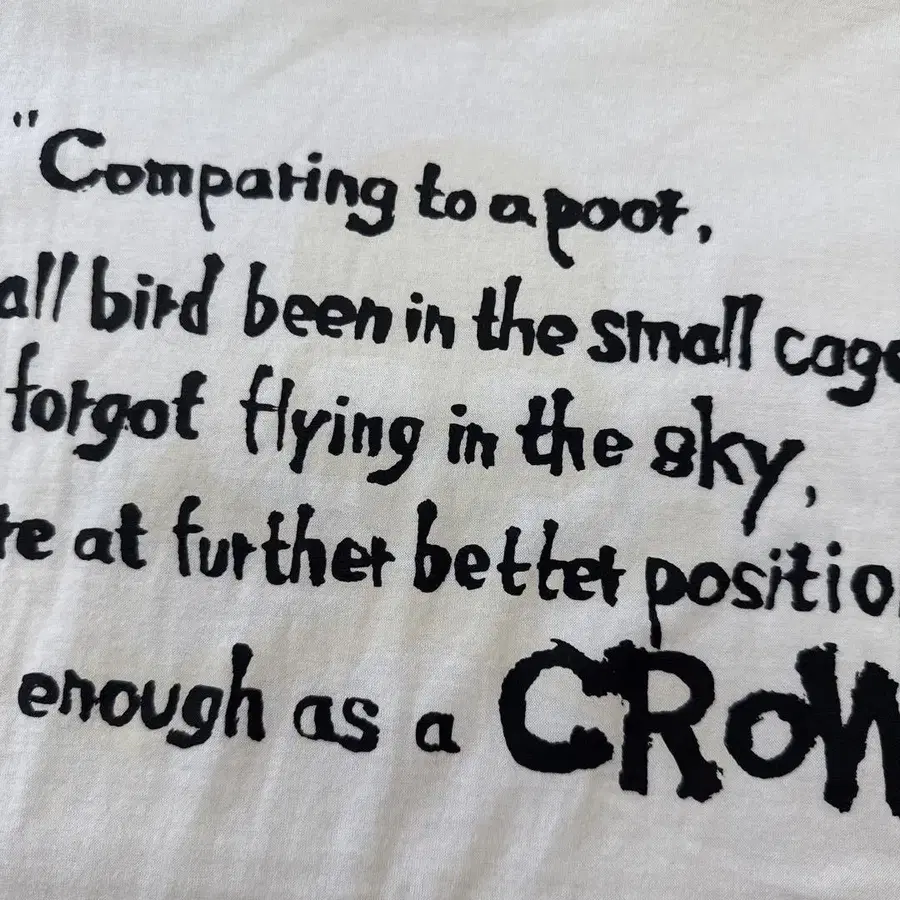 "Comparing to a poor,
all bird been in the small cage
forgot flying in the sky,
re at further better positio
enough as a CROW